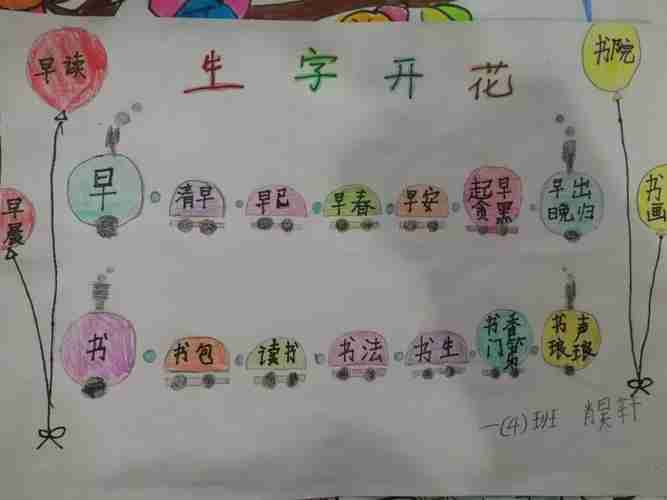 生字开花
早读
书院
早
清早
早已
早春
早安
起早
贪黑
早出
晚归
早晨
书画
书
书包
读书
书法
书生
书香
门第
书声
琅琅
一(4)班 肖昊轩